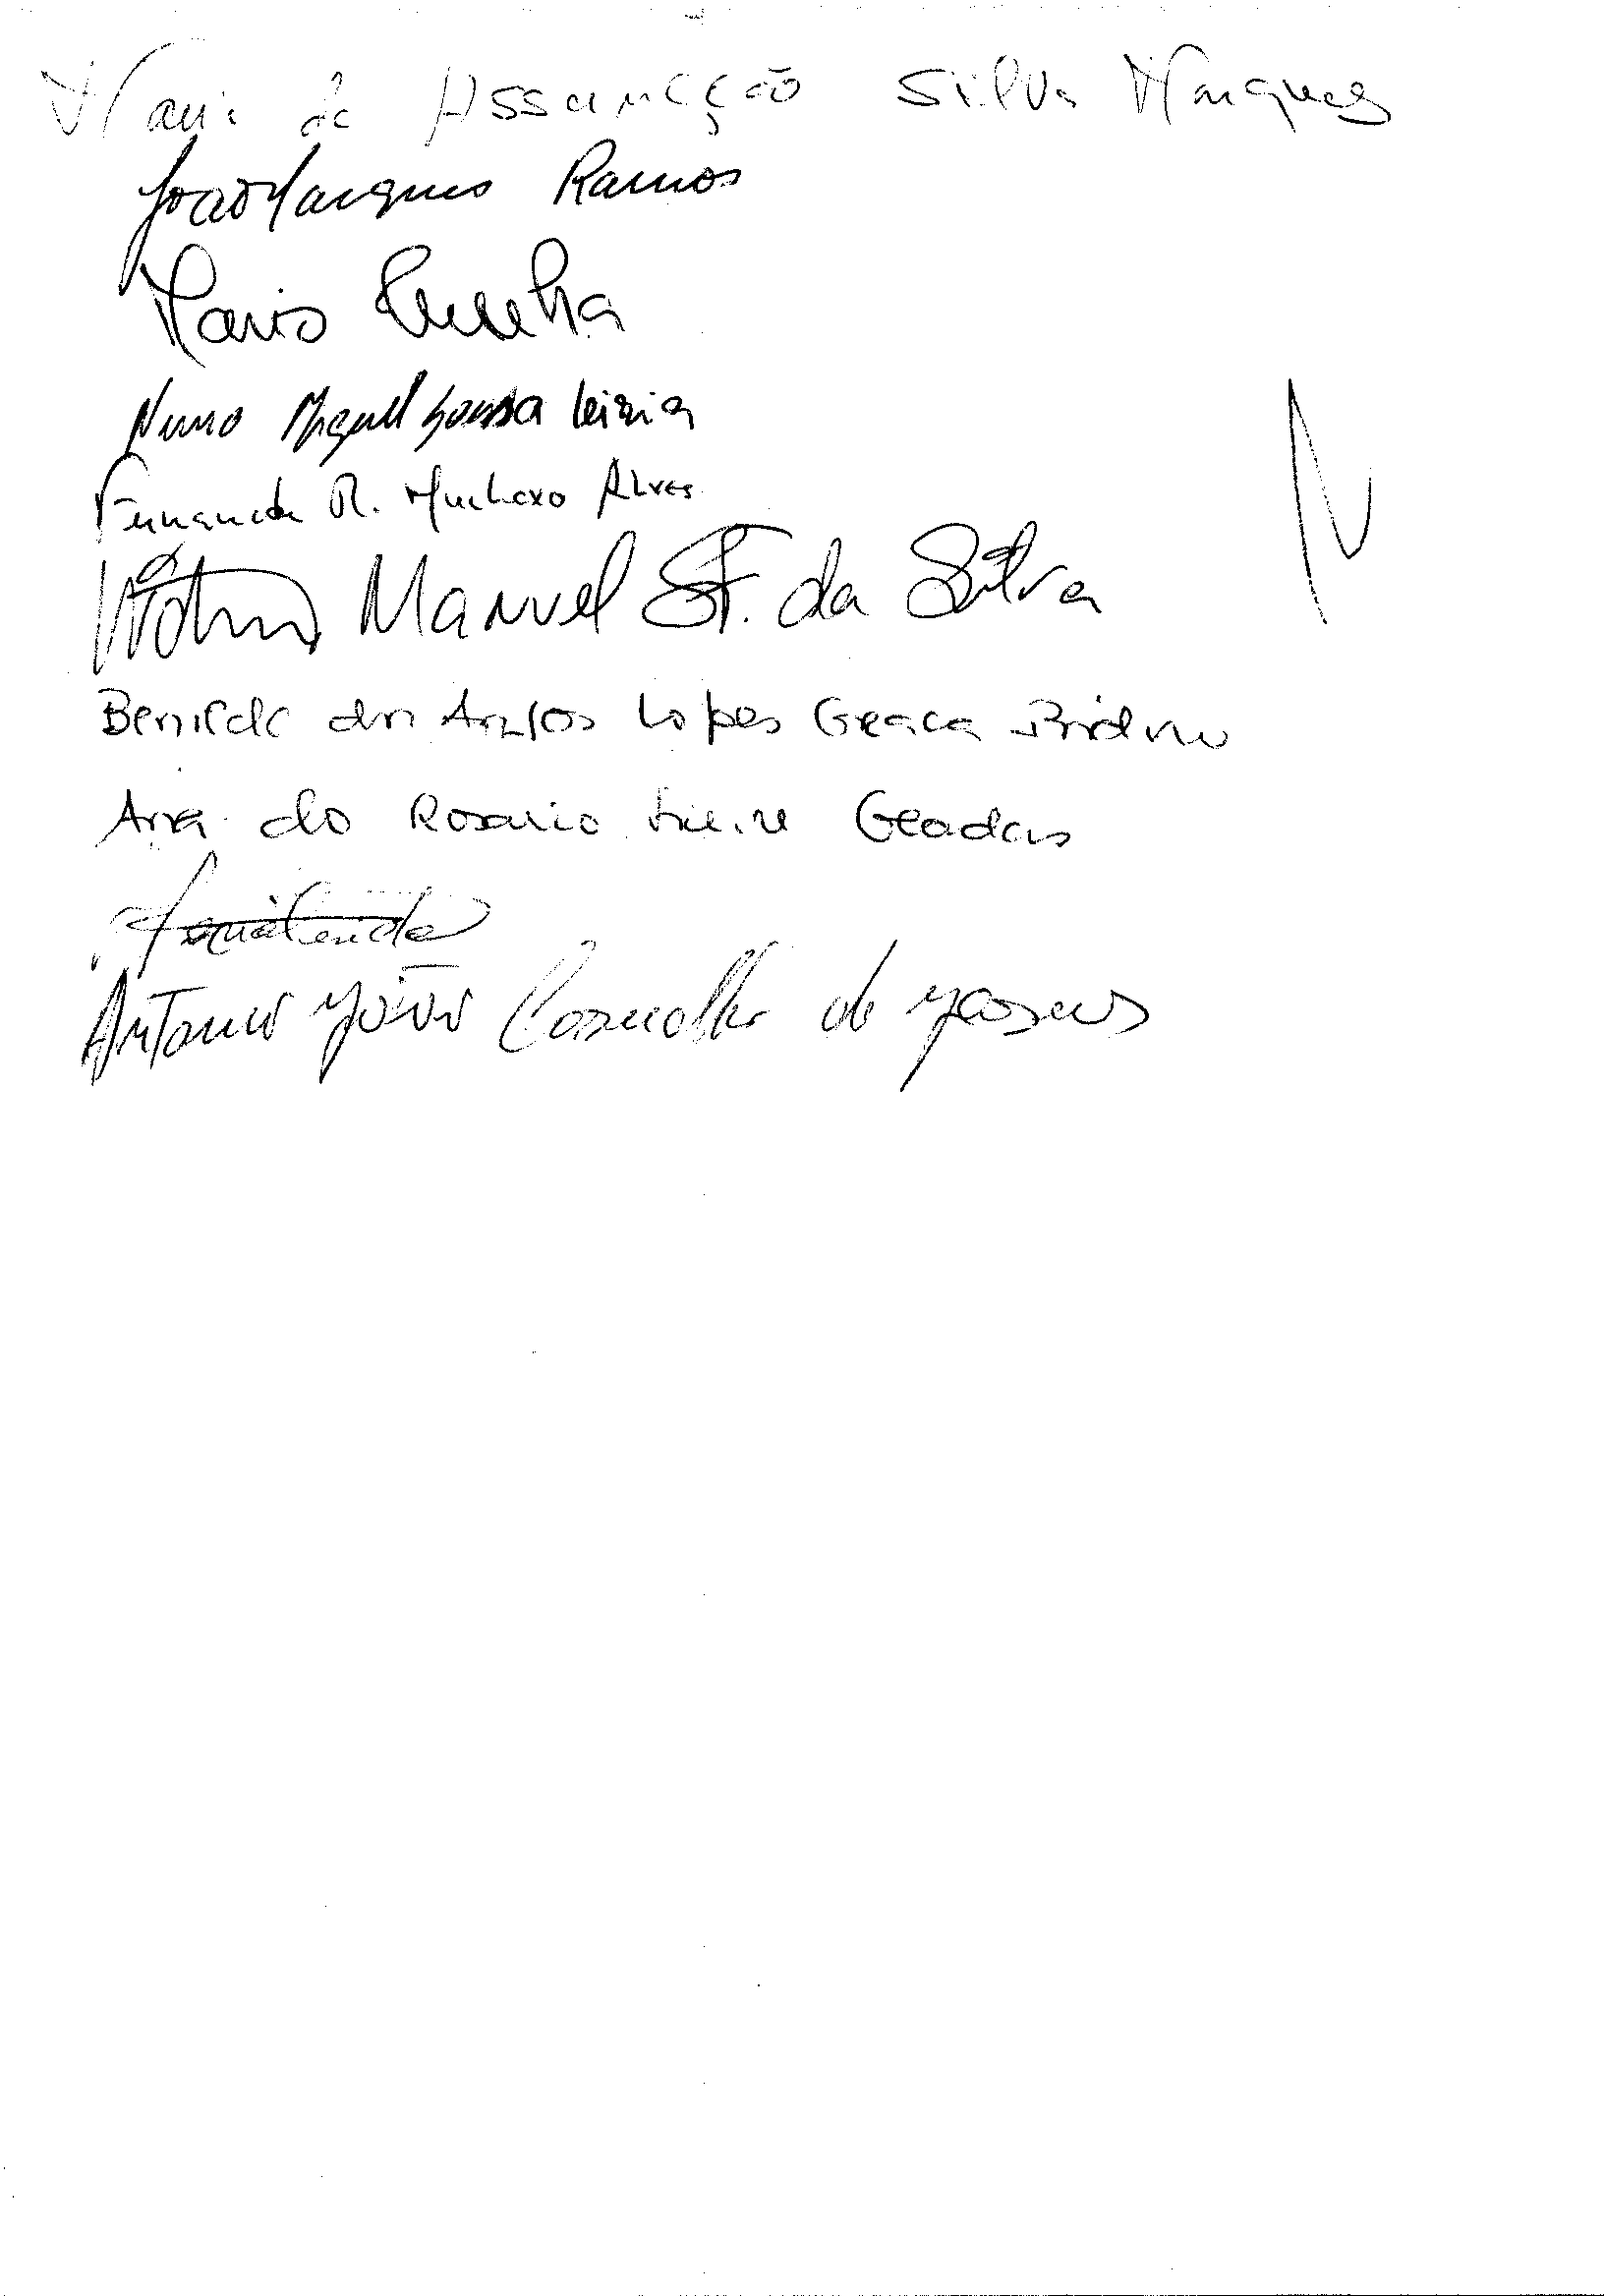 Maria da Assunção Silva Marques
João Marques Ramos
Mario Cunha
Nuno Miguel Sousa Leiria
Fernanda R. Machaxo Alves
Manuel F. da Silva
Benilde dos Anjos Lopes Graça
Ana do Rosario Geadas
Antonio João de